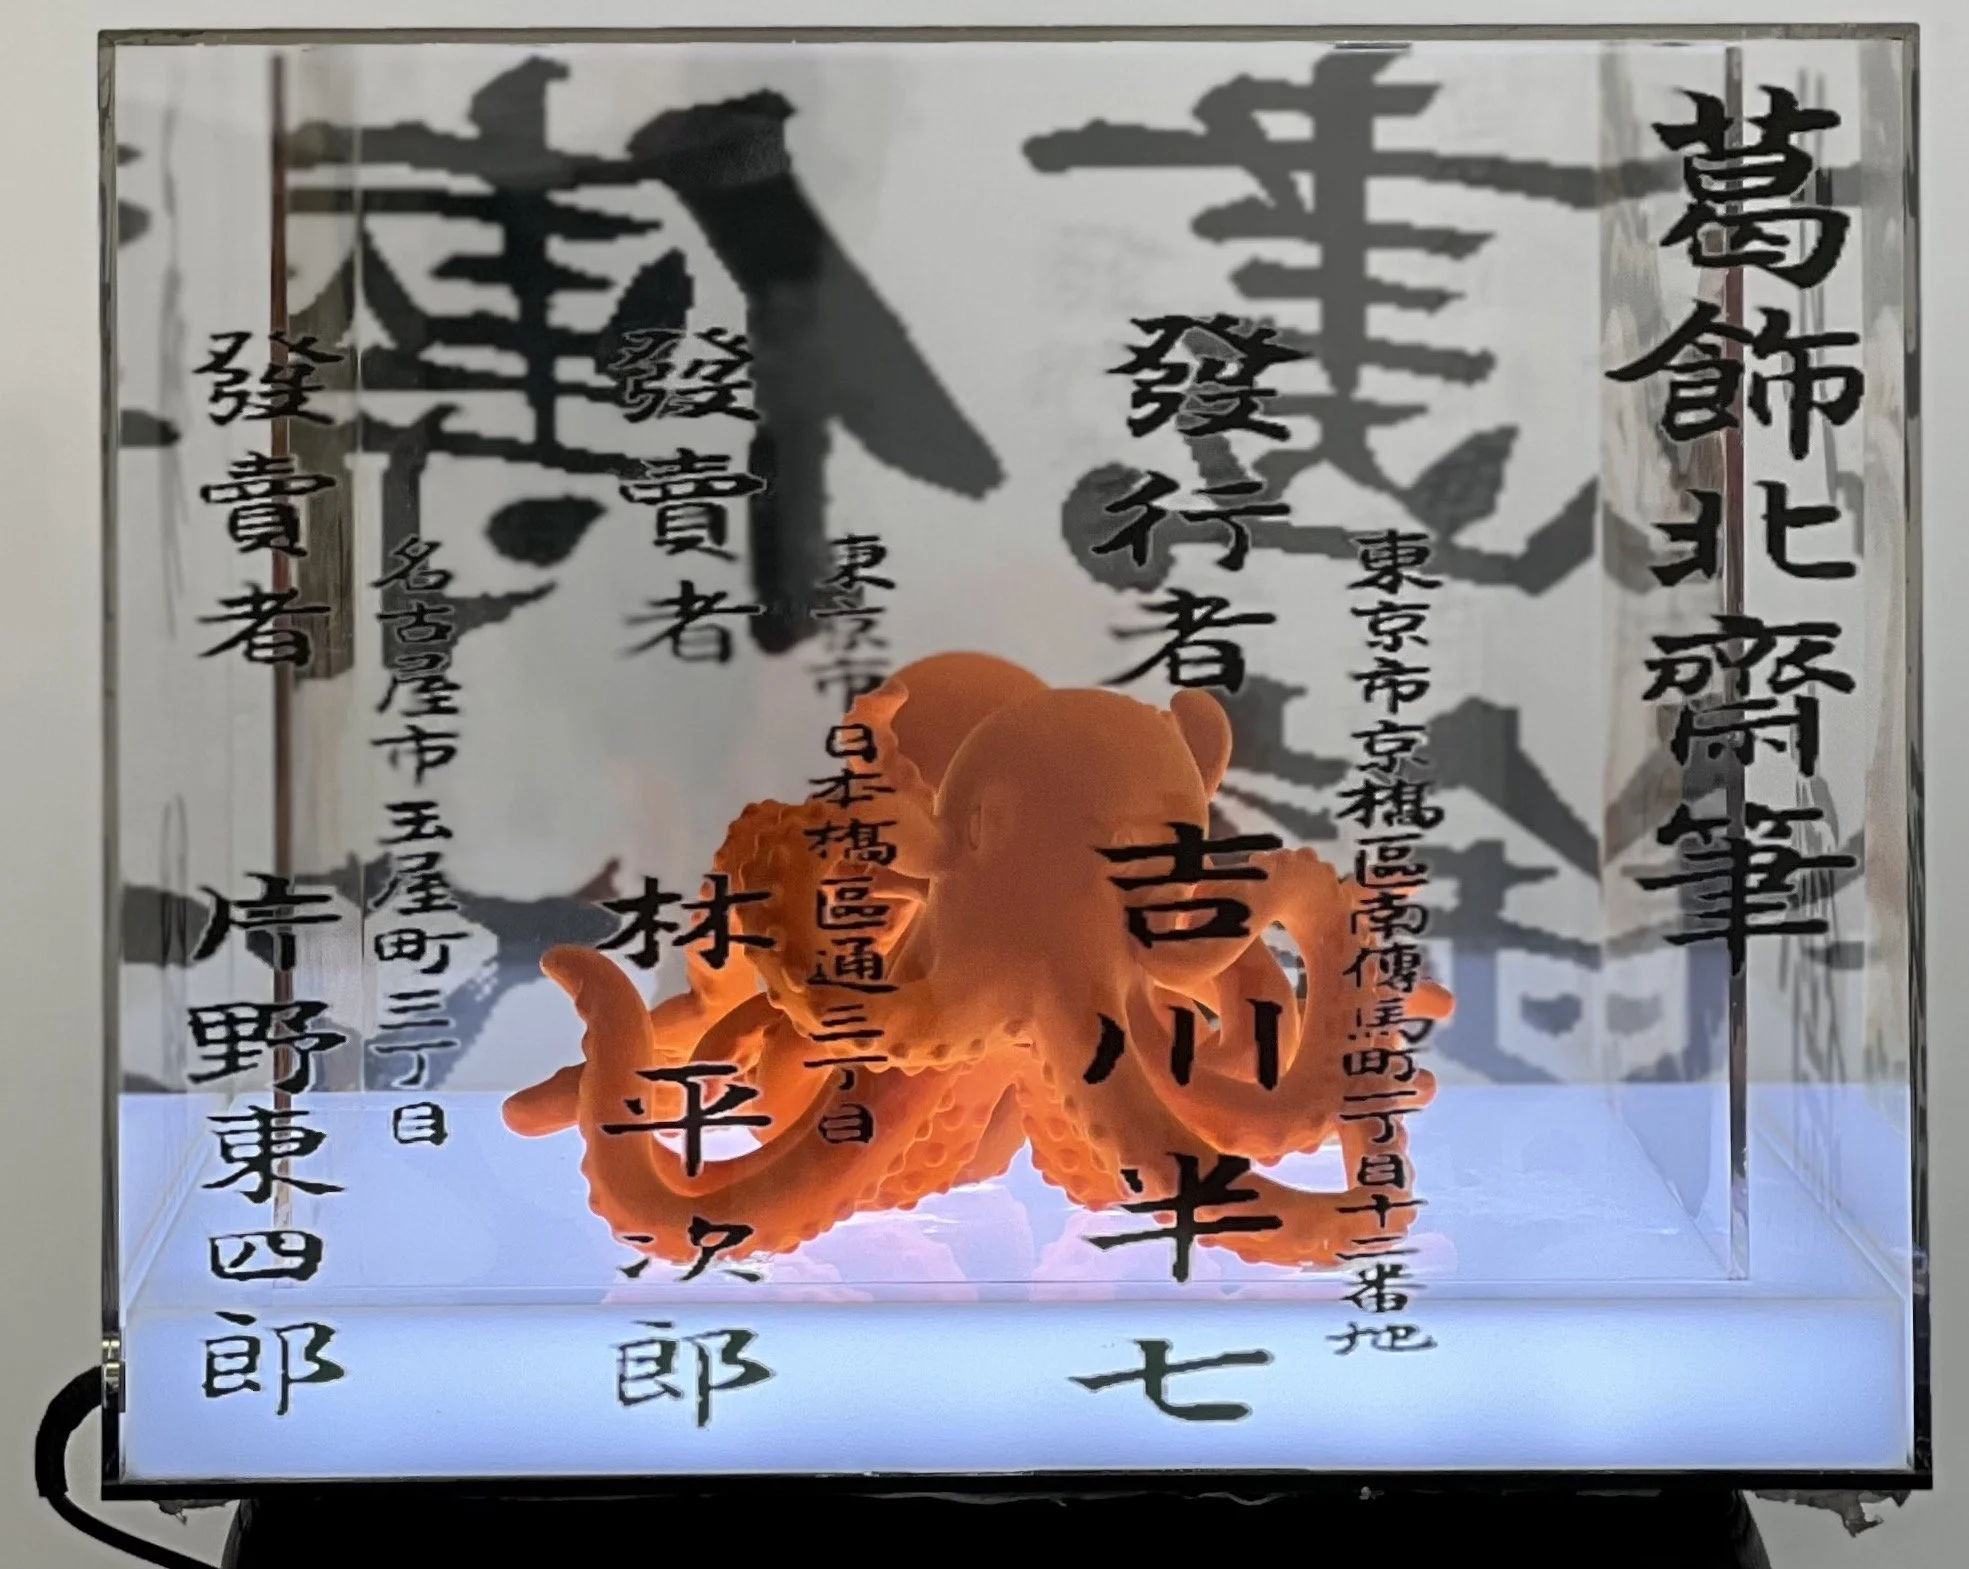 葛飾北齋筆
東京市京橋區南傳馬町一丁目十二番地
發行者 吉川半七
東京市日本橋區通三丁目
發賣者 林平次郎
名古屋市玉屋町三丁目
發賣者 片野東四郎